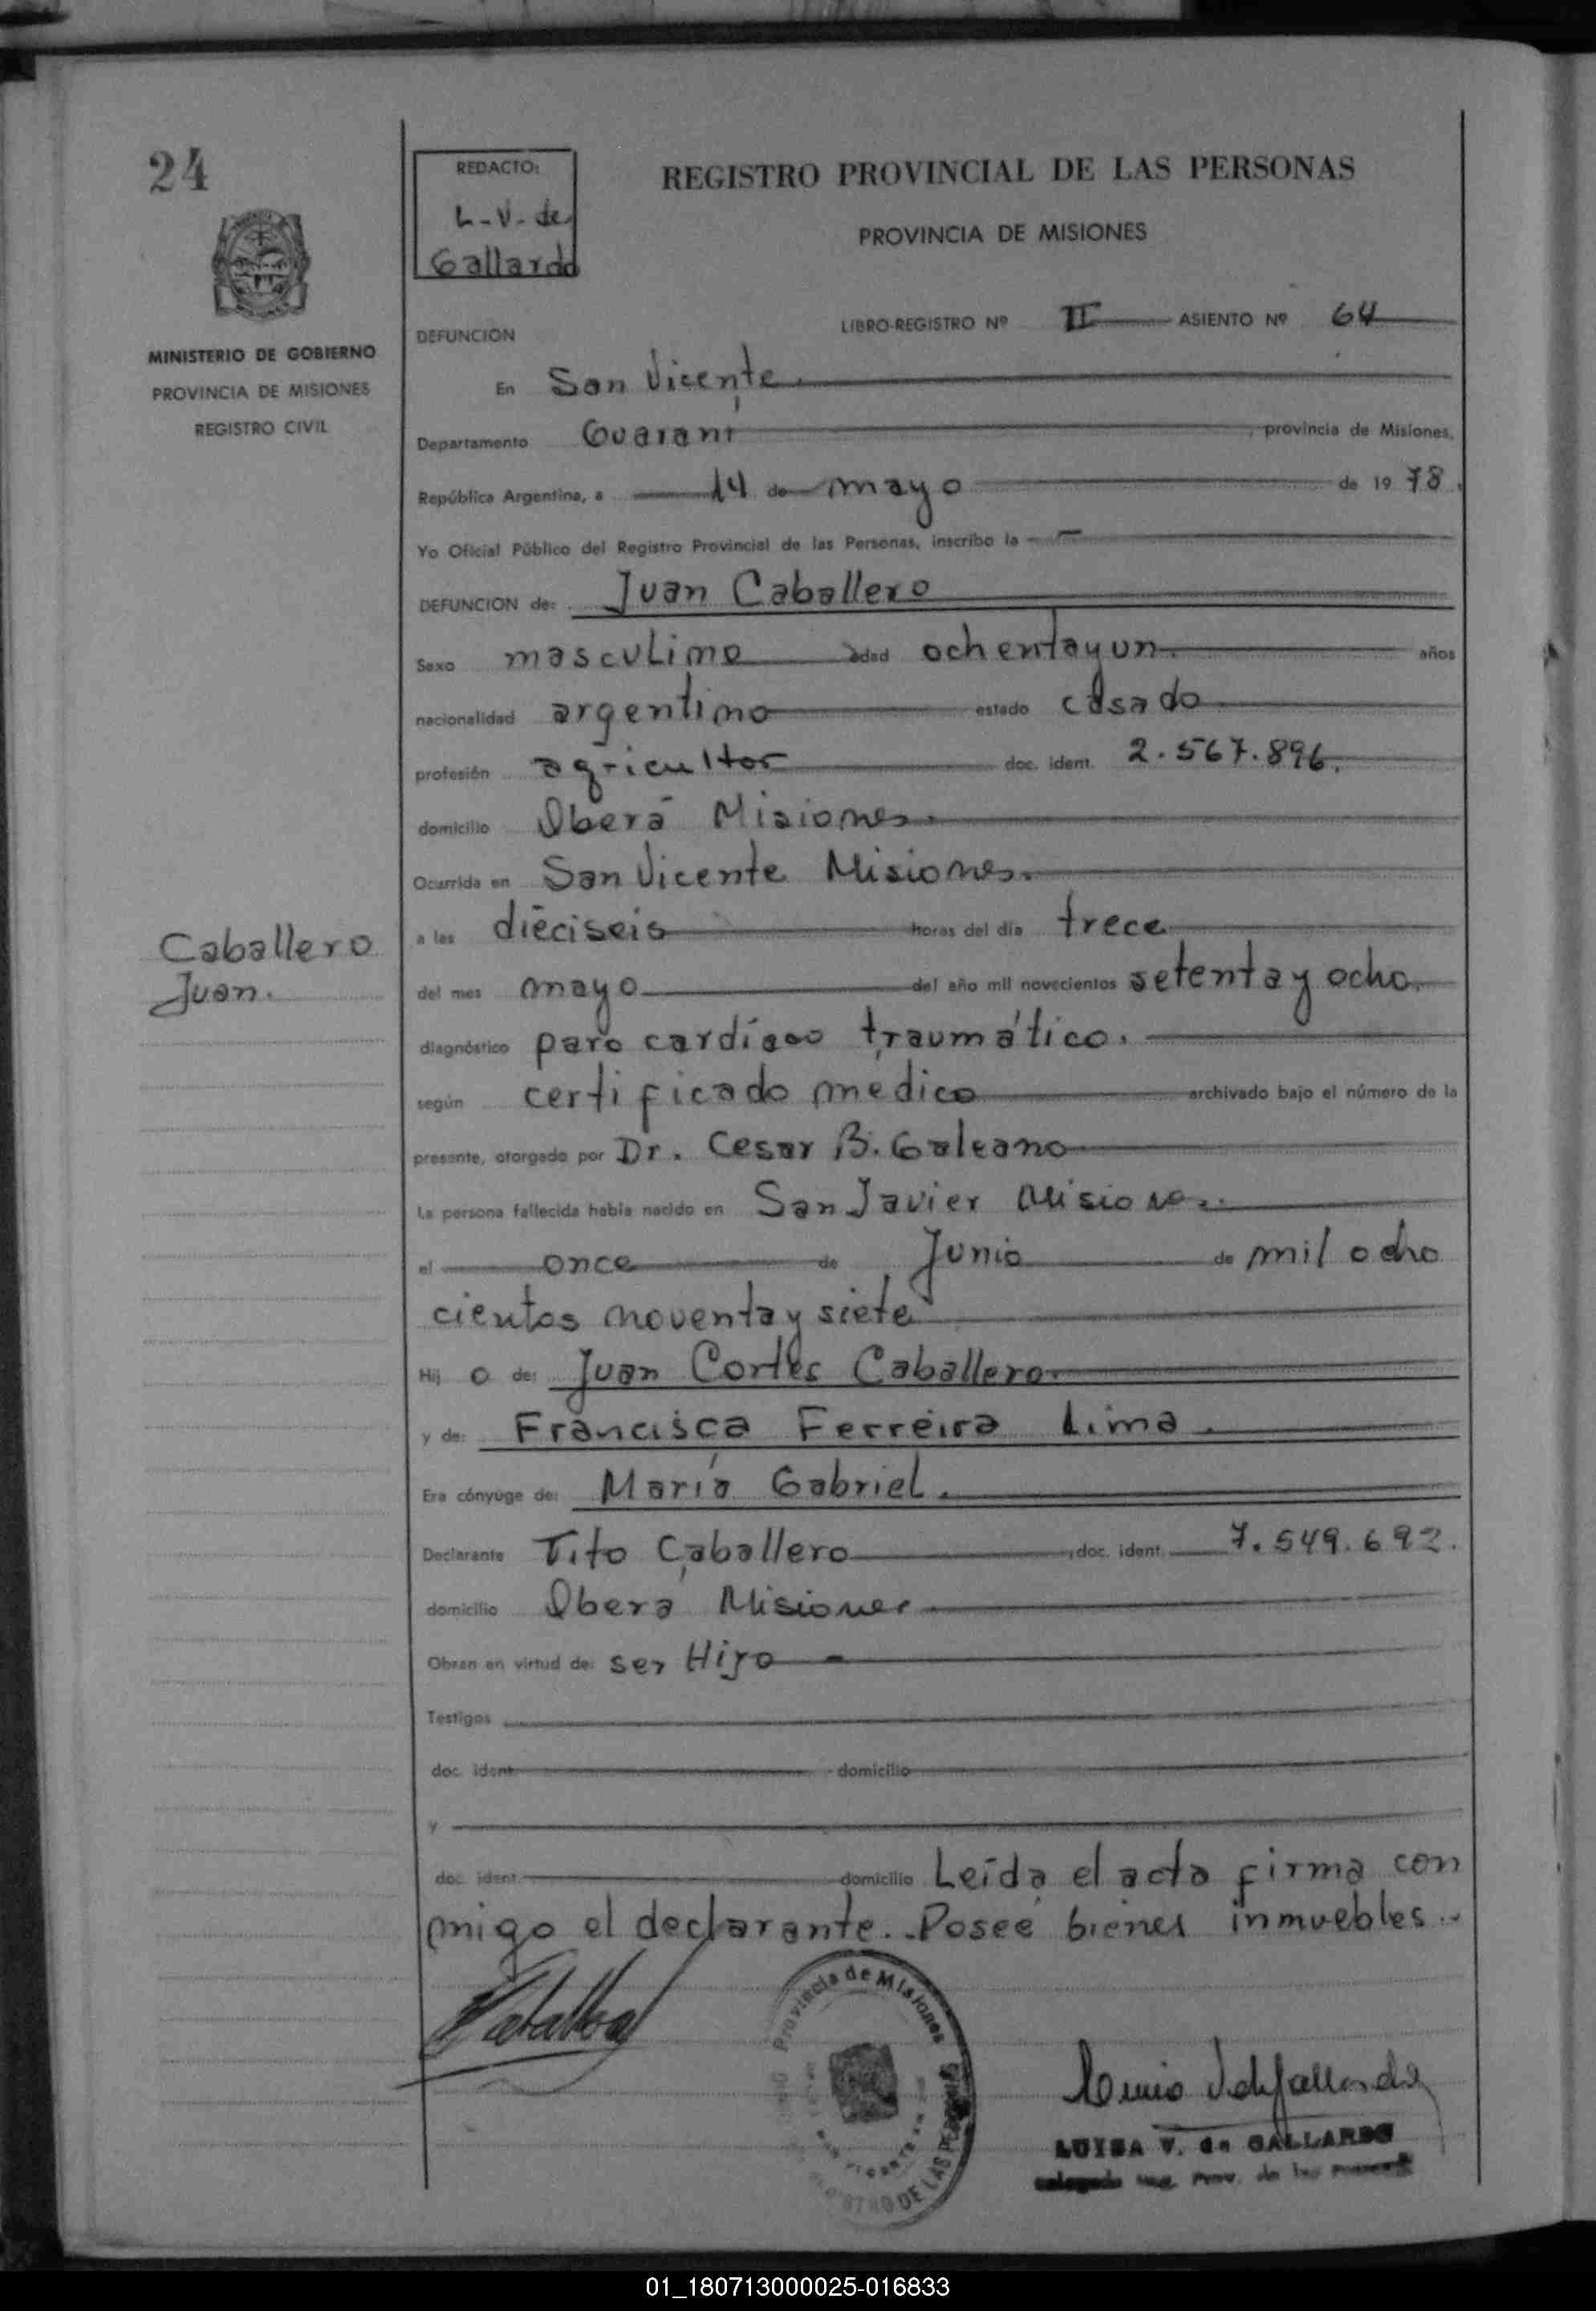 24
REDACTO:
L-V-de
Gallardo
REGISTRO PROVINCIAL DE LAS PERSONAS
PROVINCIA DE MISIONES
MINISTERIO DE GOBIERNO
PROVINCIA DE MISIONES
REGISTRO CIVIL
DEFUNCION
LIBRO-REGISTRO Nº II ASIENTO Nº 64
En San Vicente.
Departamento Guaraní, provincia de Misiones,
República Argentina, a 14 de mayo de 1978.
Yo Oficial Público del Registro Provincial de las Personas, inscribo la
DEFUNCION de: Juan Caballero
Sexo masculino edad ochentayun. años
nacionalidad argentino estado casado
profesión agricultor doc. ident. 2.567.896.
domicilio Oberá Misiones.
Ocurrida en San Vicente Misiones.
a las dieciseis horas del día trece
Caballero
Juan.
del mes mayo del año mil novecientos setenta y ocho.
diagnóstico paro cardíaco traumático.
según certificado médico archivado bajo el número de la
presente, otorgado por Dr. Cesar B. Galeano
La persona fallecida había nacido en San Javier Misiones.
el once de Junio de mil ocho
cientos noventa y siete
Hij o de: Juan Cortes Caballero.
y de: Francisca Ferreira Lima.
Era cónyuge de: María Gabriel.
Declarante Tito Caballero, doc. ident. 7.549.692.
domicilio Oberá Misiones
Obran en virtud de: ser Hijo
Testigos
doc. ident. domicilio
y
doc. ident. domicilio Leída el acta firma con
migo el declarante. Posee bienes inmuebles.
Provincia de Misiones
REGISTRO DE LAS PERSONAS
LUISA V. de GALLARDO
01_180713000025-016833